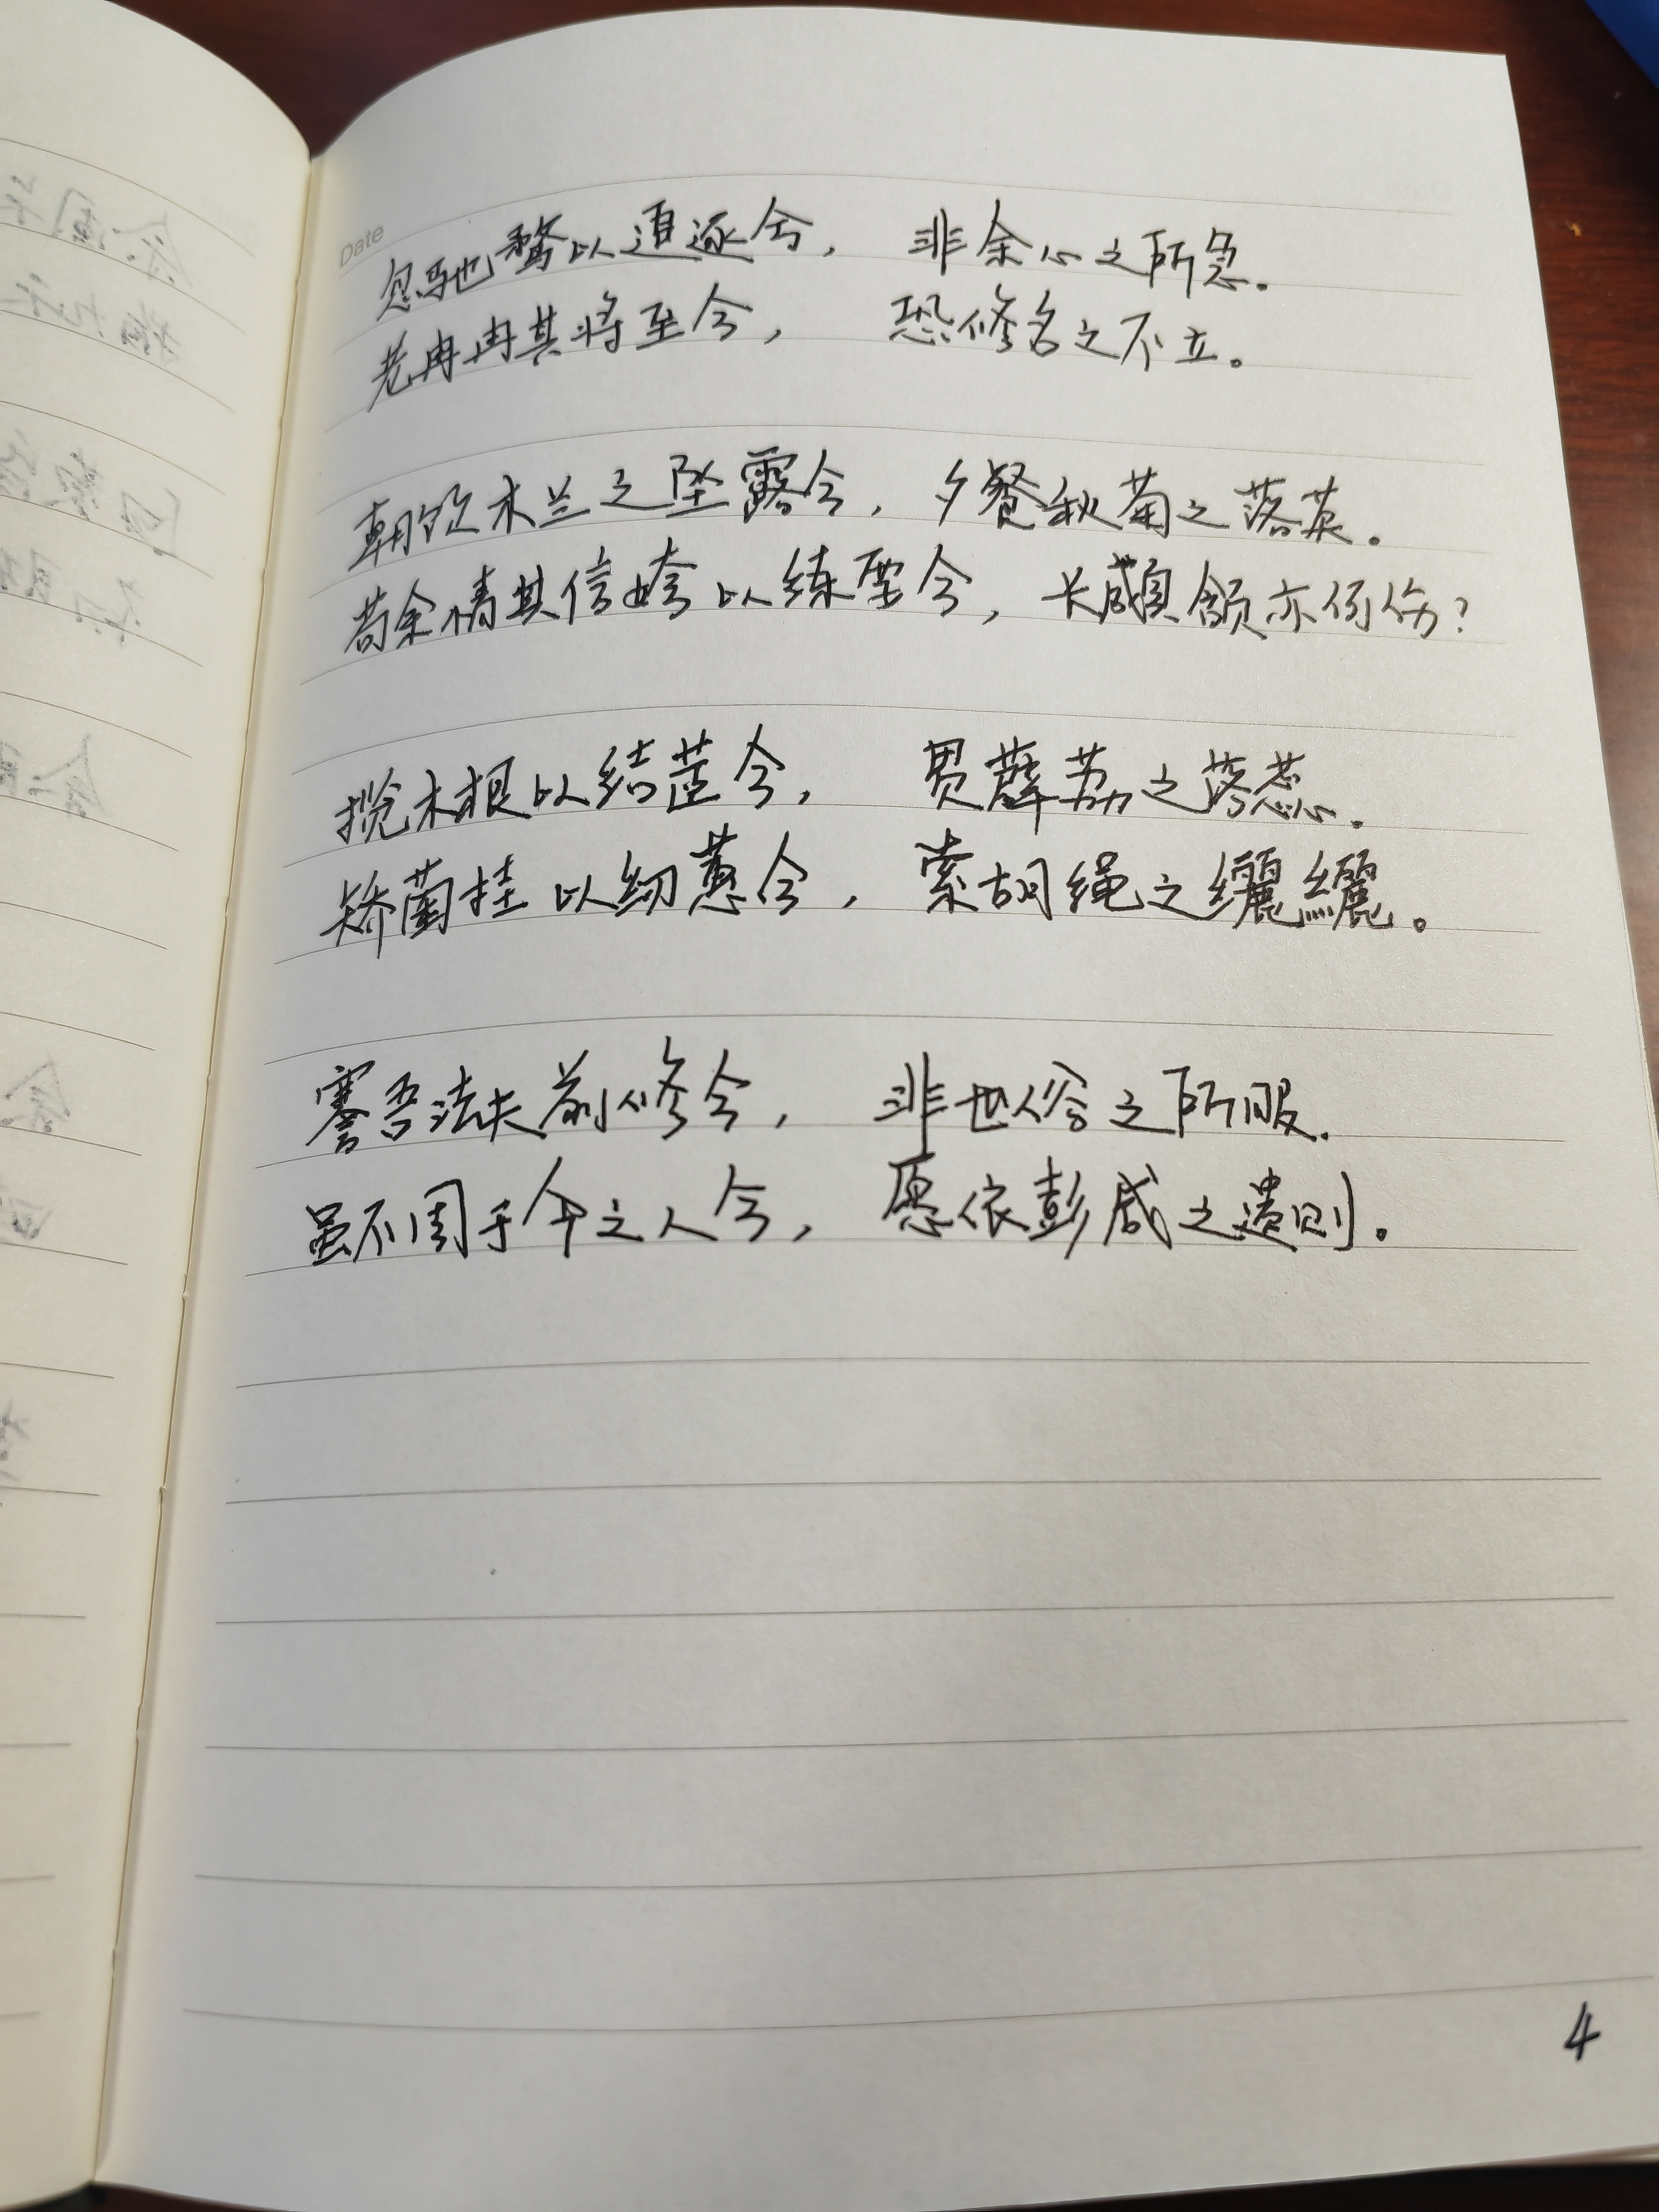 Date
忽驰骛以追逐兮，非余心之所急。
老冉冉其将至兮，恐修名之不立。
朝饮木兰之坠露兮，夕餐秋菊之落英。
苟余情其信姱以练要兮，长顑颔亦何伤？
揽木根以结茝兮，贯薜荔之落蕊。
矫菌桂以纫蕙兮，索胡绳之纚纚。
謇吾法夫前修兮，非世俗之所服。
虽不周于今之人兮，愿依彭咸之遗则。
4